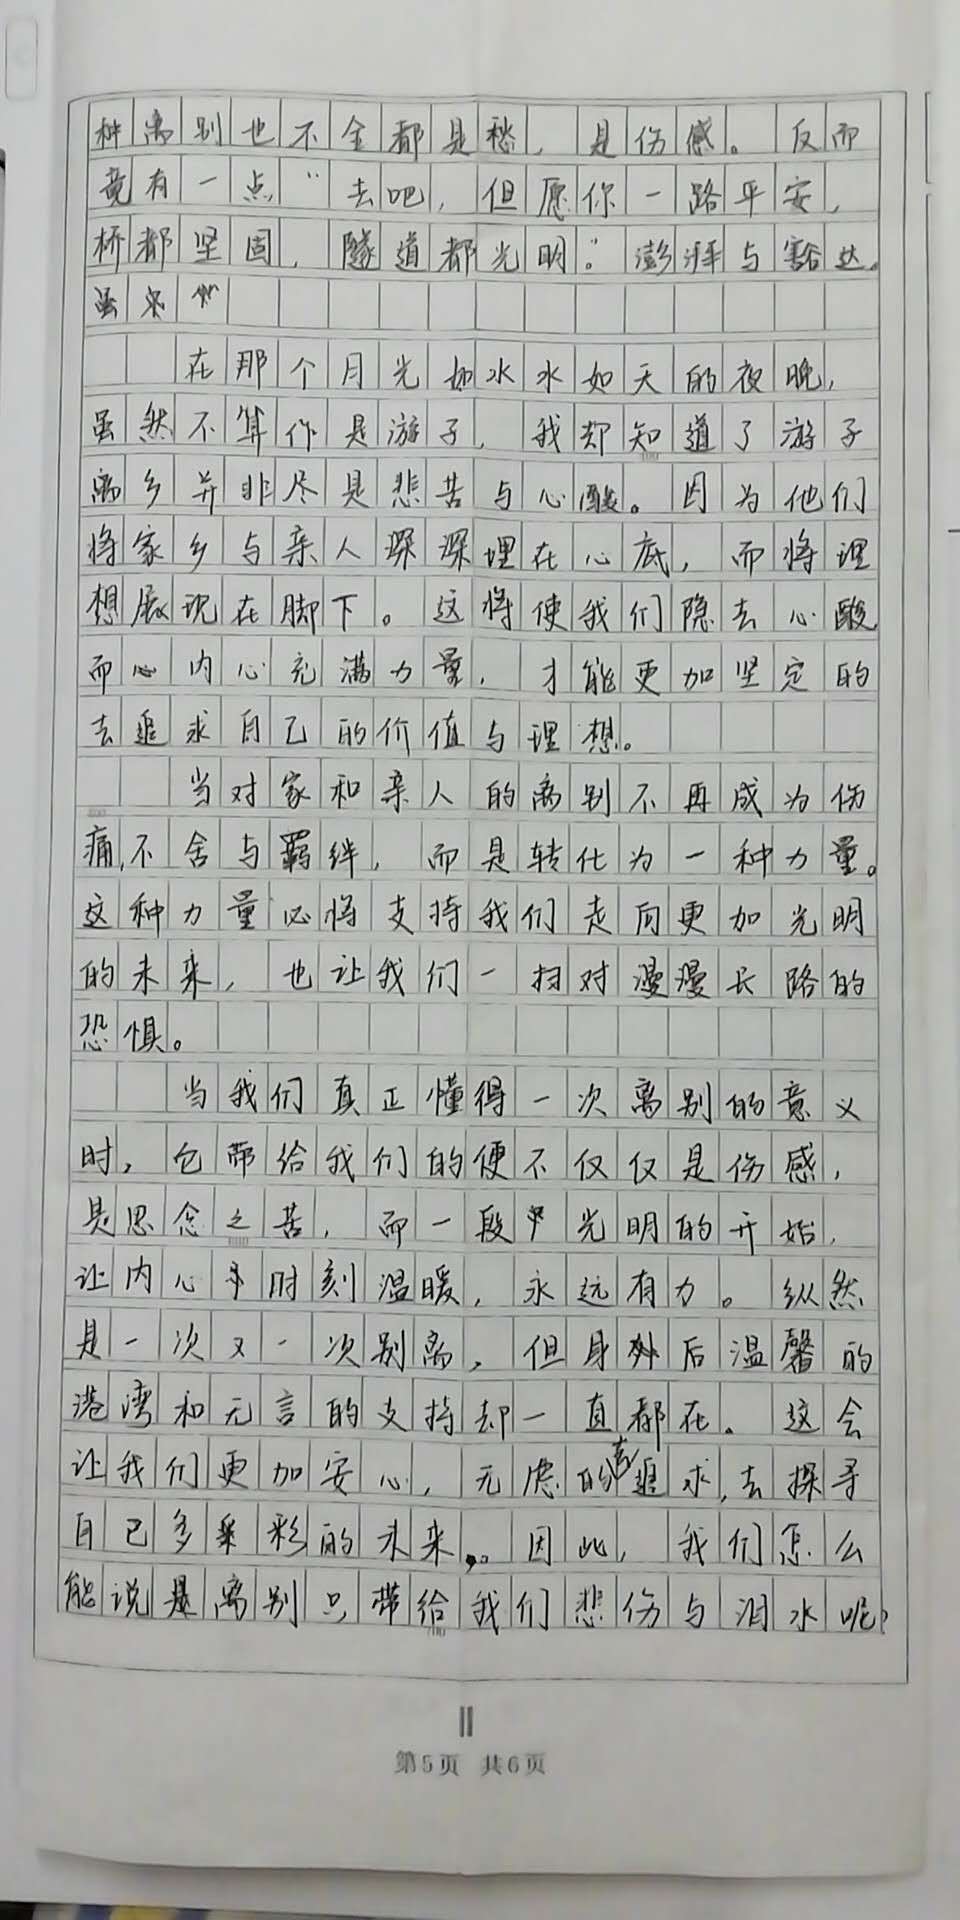 种离别也不全都是愁，是伤感。反而
竟有一点“去吧，但愿你一路平安，
桥都坚固，隧道都光明。”澎湃与豁达。
虽
在那个月光如水水如天的夜晚，
虽然不算作是游子，我却知道了游子
离乡并非尽是悲苦与心酸。因为他们
将家乡与亲人深深埋在心底，而将理
想展现在脚下。这将使我们隐去心酸
而内心充满力量，才能更加坚定的
去追求自己的价值与理想。
当对家和亲人的离别不再成为伤
痛，不舍与羁绊，而是转化为一种力量。
这种力量必将支持我们走向更加光明
的未来，也让我们一扫对漫漫长路的
恐惧。
当我们真正懂得一次离别的意义
时，它带给我们的便不仅仅是伤感，
是思念之苦，而一段光明的开始，
让内心时刻温暖，永远有力。纵然
是一次又一次别离，但身后温馨的
港湾和无言的支持却一直都在。这会
让我们更加安心，无虑的去追求，去探寻
自己多彩的未来。因此，我们怎么
能说是离别只带给我们悲伤与泪水呢？
第5页 共6页